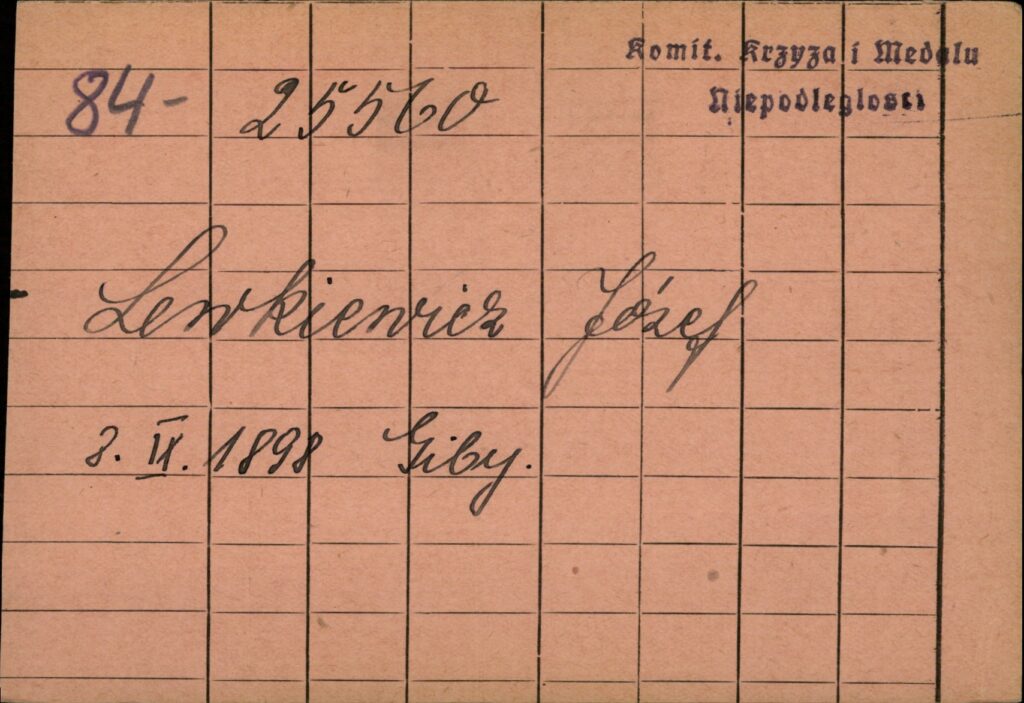 Komit. Krzyza i Medalu
Niepodleglosci
84- 25560
Lewkiewicz Józef
3. IX. 1898 Giby.